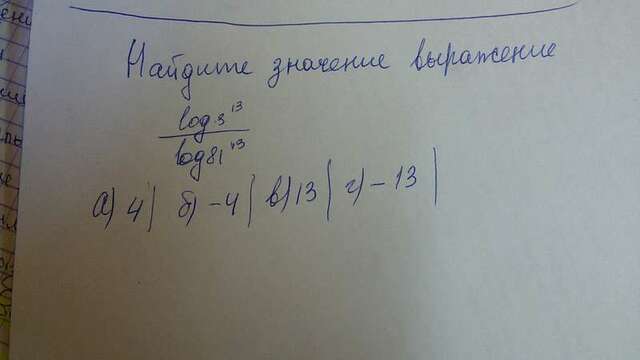 Найдите значение выражение
log₃ 13
log₈₁ 13
а) 4 | б) -4 | в) 13 | г) -13 |